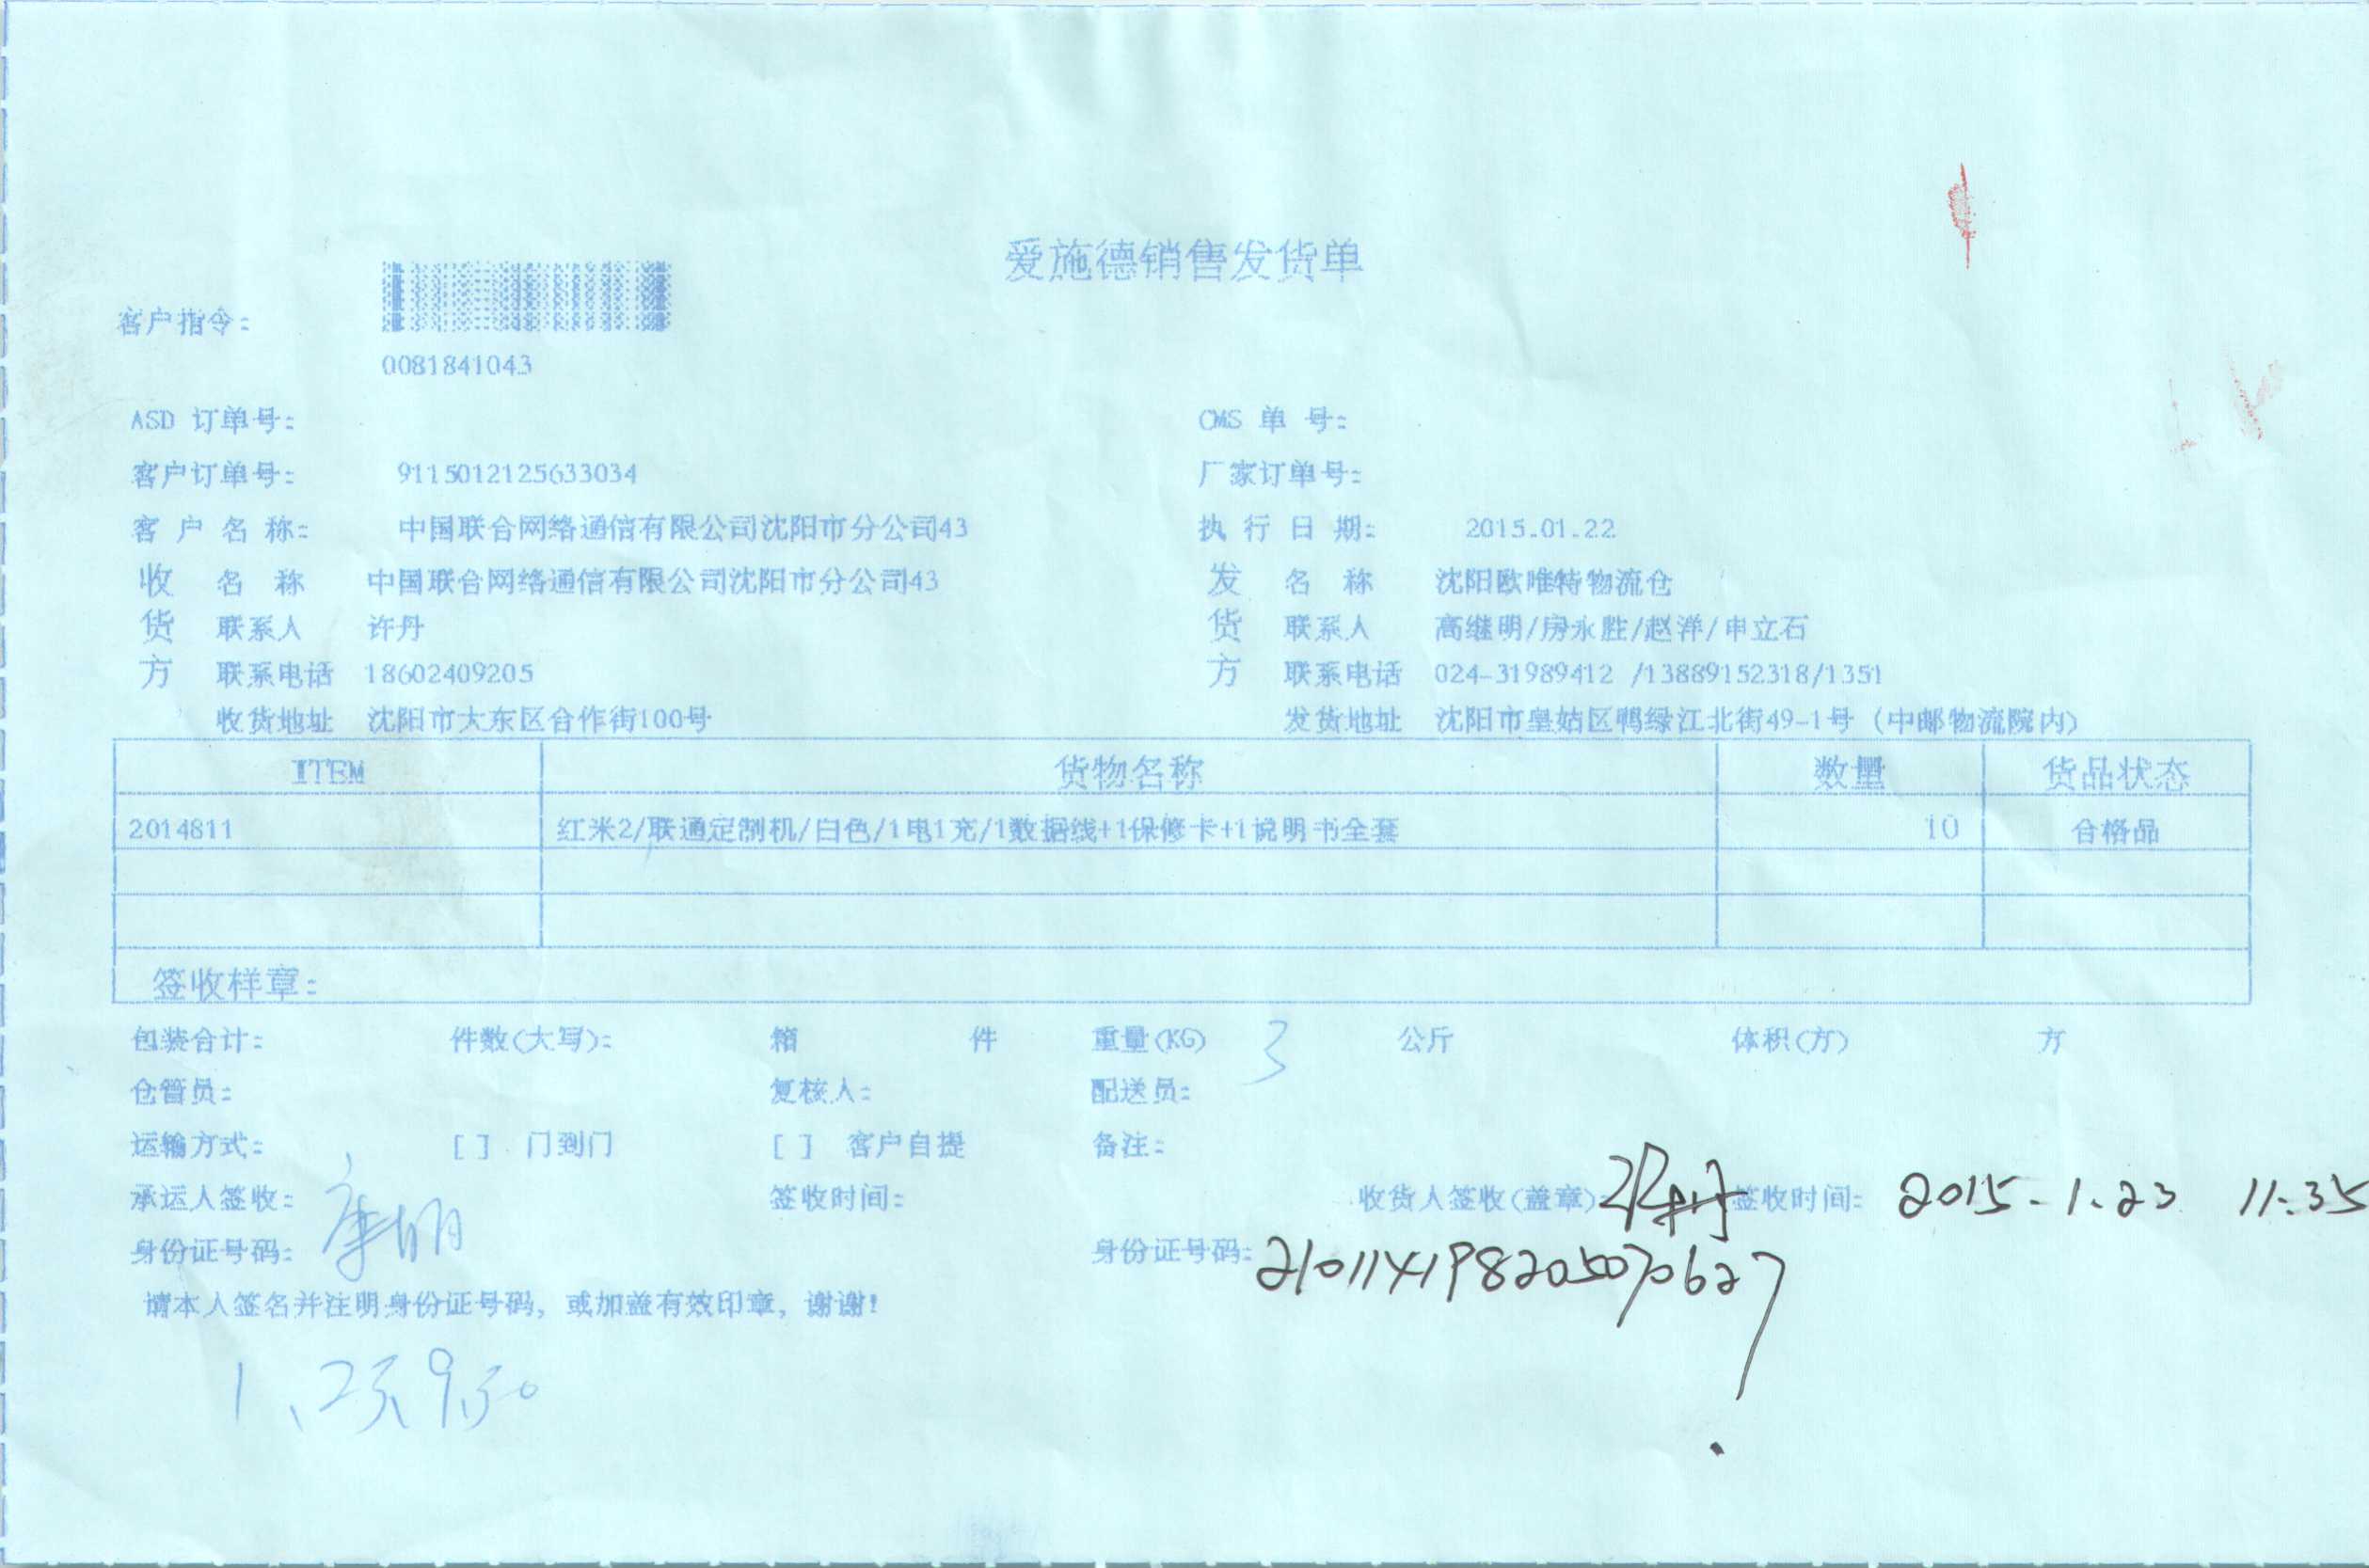 爱施德销售发货单
客户指令:
0081841043
ASD 订单号: CMS 单 号:
客户订单号: 9115012125633034 厂家订单号:
客 户 名 称: 中国联合网络通信有限公司沈阳市分公司43 执 行 日 期: 2015.01.22
收 名 称 中国联合网络通信有限公司沈阳市分公司43 发 名 称 沈阳欧唯特物流仓
货 联系人 许丹 货 联系人 高继明/房永胜/赵洋/申立石
方 联系电话 18602409205 方 联系电话 024-31989412 /13889152318/1351
收货地址 沈阳市大东区合作街100号 发货地址 沈阳市皇姑区鸭绿江北街49-1号 (中邮物流院内)
ITEM 货物名称 数量 货品状态
2014811 红米2/联通定制机/白色/1电1充/1数据线+1保修卡+1说明书全套 10 合格品
签收样章:
包装合计: 件数(大写): 箱 件 重量(KG) 3 公斤 体积(方) 方
仓管员: 复核人: 配送员:
运输方式: [ ] 门到门 [ ] 客户自提 备注:
承运人签收: 签收时间: 收货人签收(盖章): 签收时间: 2015.1.23 11:35
身份证号码: 身份证号码: 210114198205070627
请本人签名并注明身份证号码, 或加盖有效印章, 谢谢!